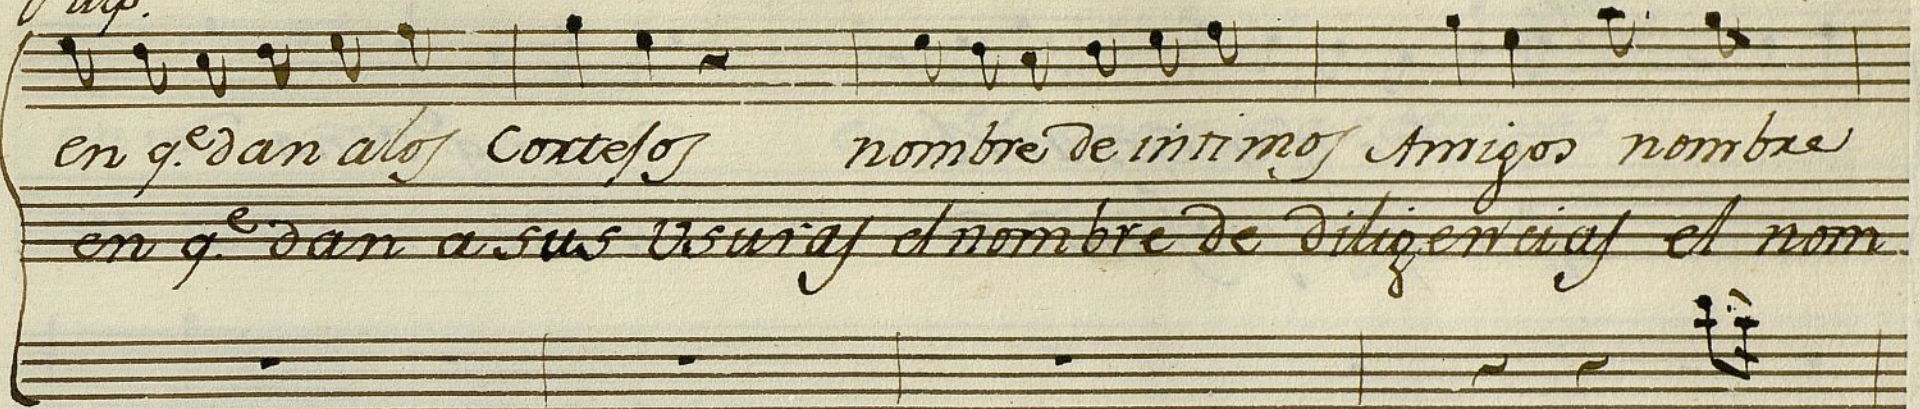 en q.e dan alos Cortesos nombre de intimos Amigos nombre
en q.e dan a sus Usuras el nombre de diligencias el nom